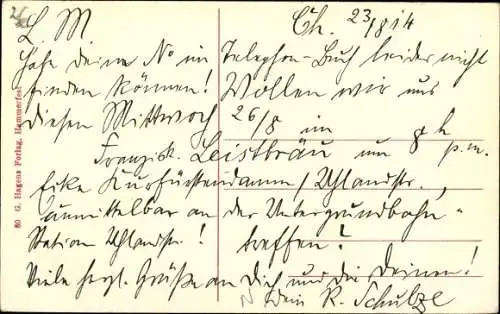 L. M
Ch. 23/8 14
Habe deine No im Telephon-Buch leider nicht
finden können! Wollen wir uns
diesen Mittwoch 26/8 im
Franzisk. Leistbräu um 8 h p.m.
Ecke Kurfürstendamm/Uhlandstr.,
unmittelbar an der Untergrundbahn-
Station Uhlandstr.! treffen?
Viele herzl. Grüße an Dich und die Deinen!
Dein R. Schulze
60 G. Hagens Forlag, Hammerfest